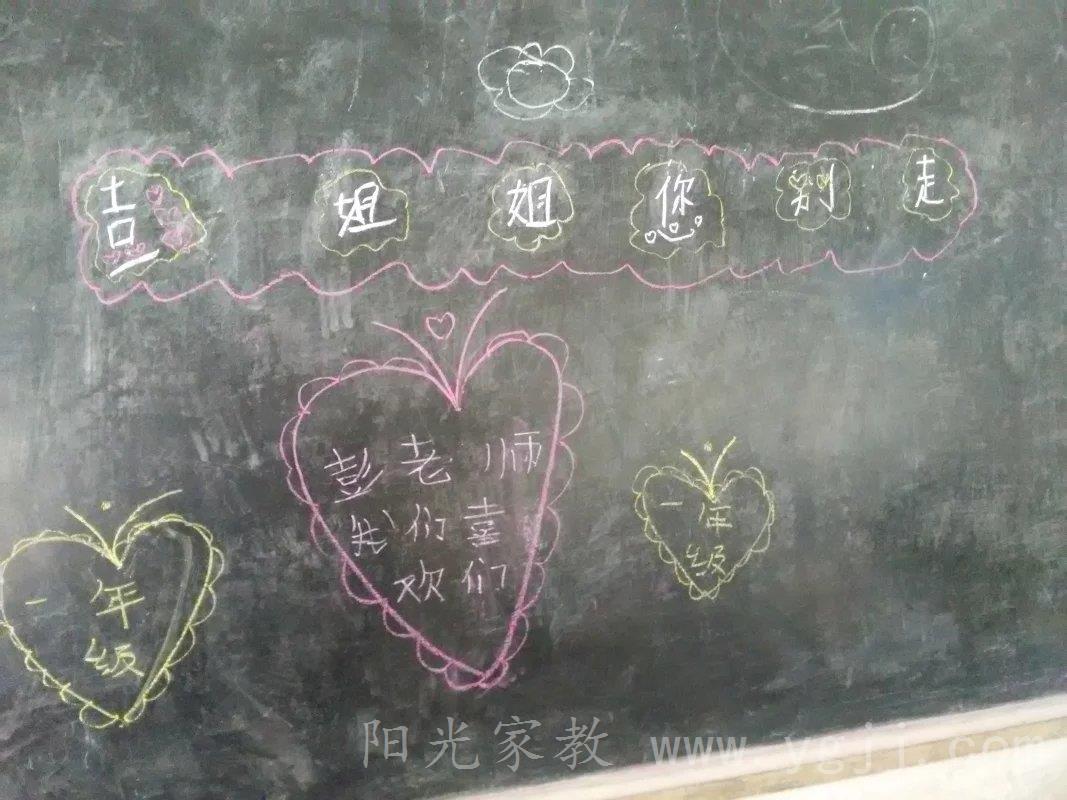 吉姐姐您别走
彭老师
我们喜
欢们
一年
级
一年
级
阳光家教 www.ygjj.com